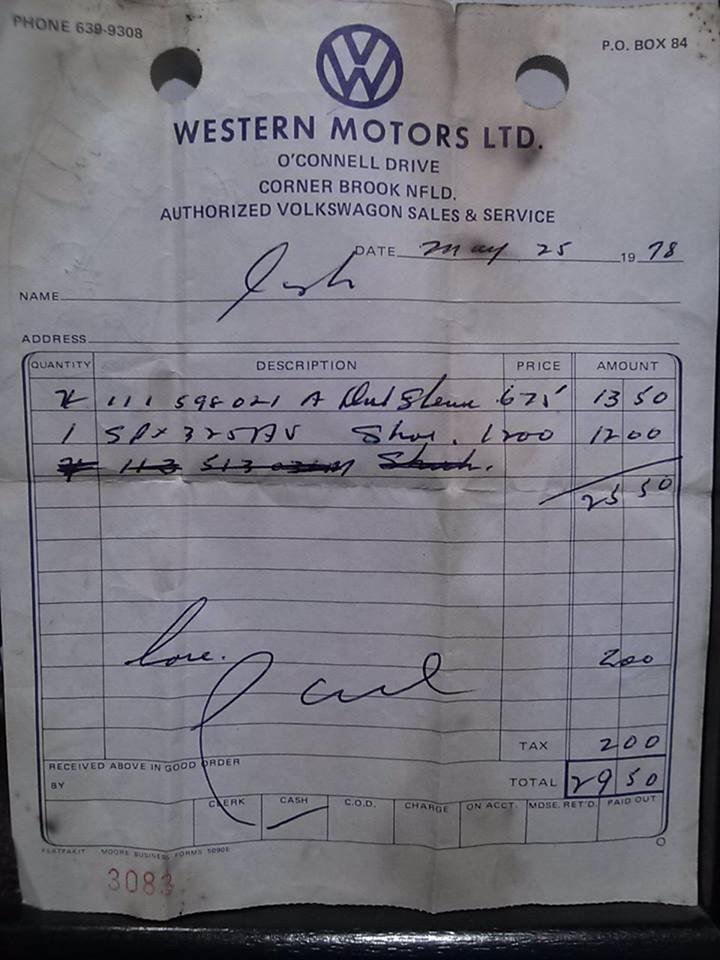 PHONE 639-9308
P.O. BOX 84
VW
WESTERN MOTORS LTD.
O'CONNELL DRIVE
CORNER BROOK NFLD.
AUTHORIZED VOLKSWAGON SALES & SERVICE
DATE May 25 1978
NAME Cash
ADDRESS
QUANTITY DESCRIPTION PRICE AMOUNT
2 111 598 021 A 675 13 50
1 1200 12 00
113 513
25 50
core. 2 00
TAX 2 00
RECEIVED ABOVE IN GOOD ORDER
BY
TOTAL 29 50
CLERK CASH C.O.D. CHARGE ON ACCT. MDSE. RET'D. PAID OUT
FLATPAKIT MOORE BUSINESS FORMS 5090E
3083